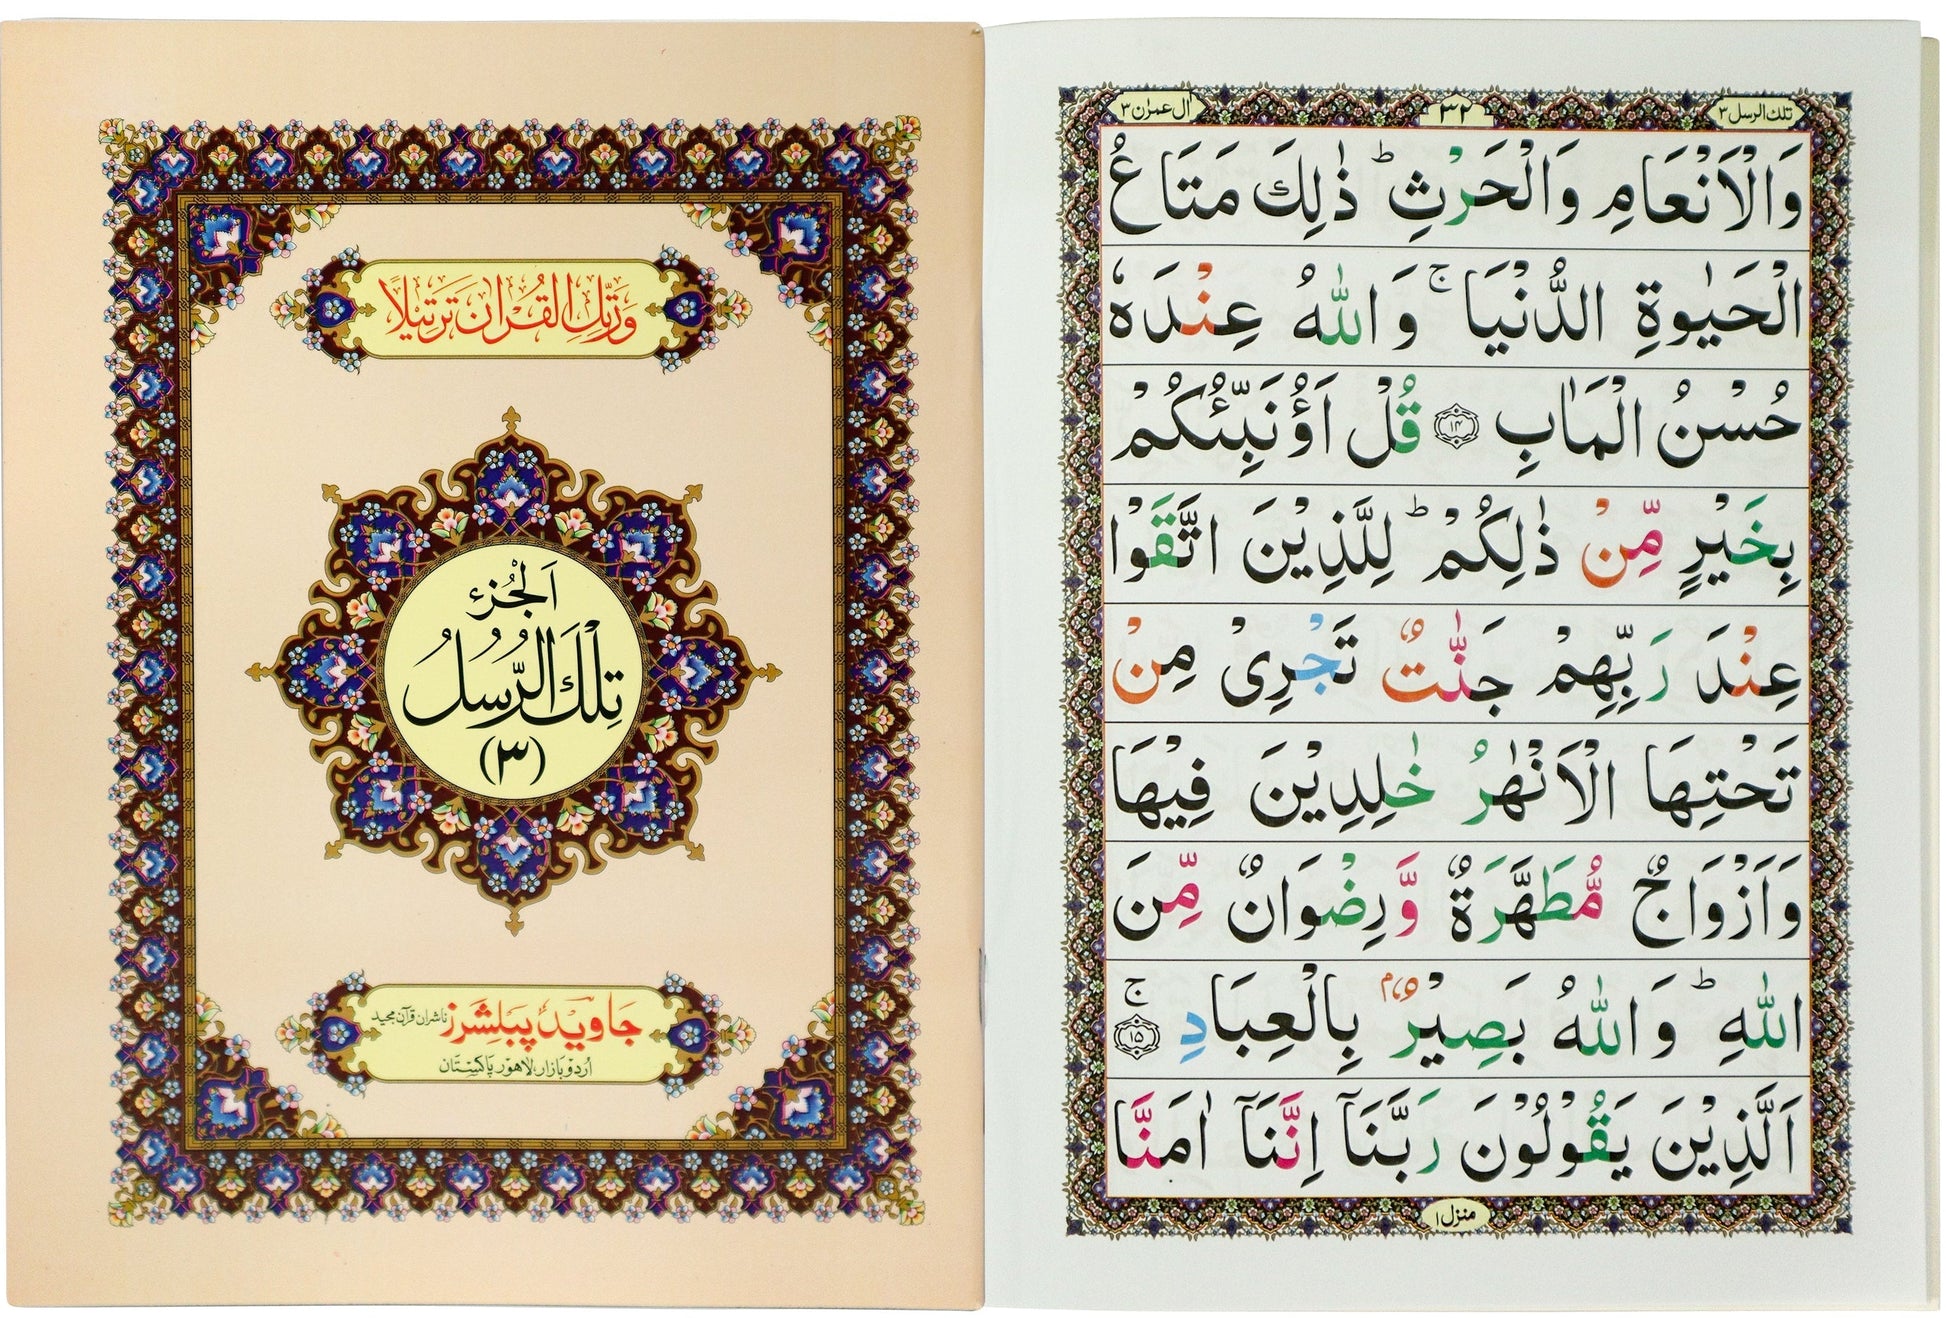 وَرَتِّلِ الْقُرْاٰنَ تَرْتِيْلًا
اَلْجُزْءُ
تِلْكَ الرُّسُلُ
(٣)
جاوید پبلشرز ناشران قرآن مجید
اُردو بازار، لاہور پاکستان
تلك الرسل ٣ ٣٢ اٰل عمرٰن ٣
وَالْاَنْعَامِ وَالْحَرْثِ ؕ ذٰلِكَ مَتَاعُ
الْحَيٰوةِ الدُّنْيَا ۚ وَاللّٰهُ عِنْدَهٗ
حُسْنُ الْمَاٰبِ ﴿۱۴﴾ قُلْ اَؤُنَبِّئُكُمْ
بِخَيْرٍ مِّنْ ذٰلِكُمْ ؕ لِلَّذِيْنَ اتَّقَوْا
عِنْدَ رَبِّهِمْ جَنّٰتٌ تَجْرِيْ مِنْ
تَحْتِهَا الْاَنْهٰرُ خٰلِدِيْنَ فِيْهَا
وَاَزْوَاجٌ مُّطَهَّرَةٌ وَّرِضْوَانٌ مِّنَ
اللّٰهِ ؕ وَاللّٰهُ بَصِيْرٌۢ بِالْعِبَادِ ۚ ﴿۱۵﴾
اَلَّذِيْنَ يَقُوْلُوْنَ رَبَّنَاۤ اِنَّنَاۤ اٰمَنَّا
منزل ١